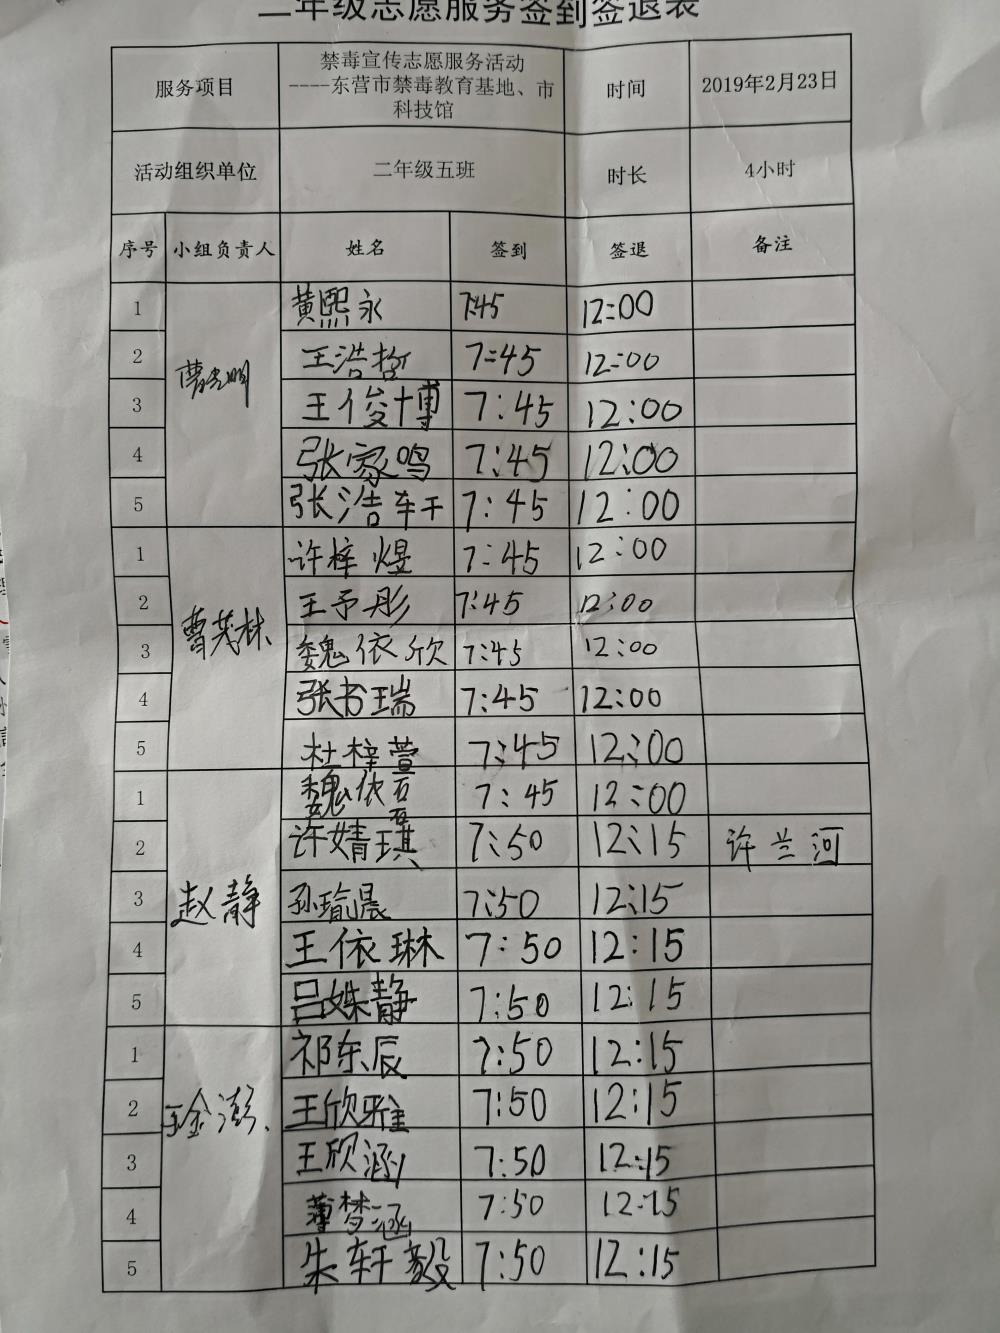 二年级志愿服务签到签退表
服务项目 禁毒宣传志愿服务活动 ----东营市禁毒教育基地、市科技馆 时间 2019年2月23日
活动组织单位 二年级五班 时长 4小时
序号 小组负责人 姓名 签到 签退 备注
1 黄熙永 7:45 12:00
2 王浩哲 7:45 12:00
3 王俊博 7:45 12:00
4 张家鸣 7:45 12:00
5 张浩轩 7:45 12:00
1 许梓煜 7:45 12:00
2 王予彤 7:45 12:00
曹茂林
3 魏依欣 7:45 12:00
4 张书瑞 7:45 12:00
5 杜梓萱 7:45 12:00
1 魏依 7:45 12:00
2 许婧琪 7:50 12:15 许兰河
赵静
3 孙瑜晨 7:50 12:15
4 王依琳 7:50 12:15
5 吕姝静 7:50 12:15
1 祁东辰 7:50 12:15
2 王欣雅 7:50 12:15
3 王欣涵 7:50 12:15
4 薄梦涵 7:50 12:15
5 朱轩毅 7:50 12:15